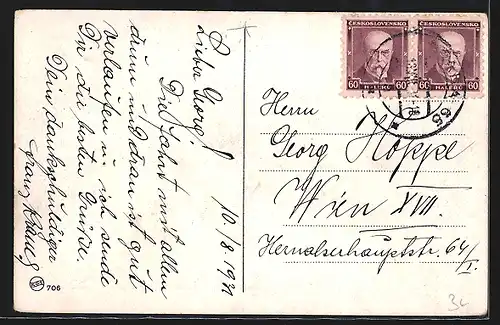 Lieber Georg!
Die Fahrt mit allem
drum und dran ist gut
verlaufen u. ich sende
Dir die besten Grüße.
Dein dankschuldiger
Franz
10/8 1931
706
ČESKOSLOVENSKO
60 HALÉŘŮ
ČESKOSLOVENSKO
60 HALÉŘŮ
Herrn
Georg Hoppe
Wien XVII.
Hernalserhauptstr. 64/I.
34